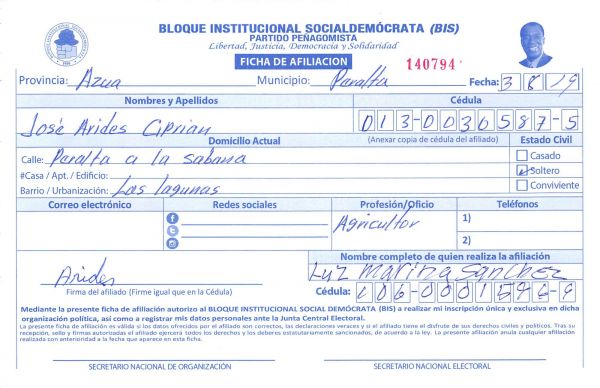 BLOQUE INSTITUCIONAL SOCIALDEMÓCRATA (BIS)
PARTIDO PEÑAGOMISTA
Libertad, Justicia, Democracia y Solidaridad
FICHA DE AFILIACION
140794
Provincia: Azua Municipio: Peralta Fecha: 3 8 19
Nombres y Apellidos Cédula
José Arides Ciprian 013-0036587-5
Domicilio Actual (Anexar copia de cédula del afiliado) Estado Civil
Calle: Peralta a la sabana Casado
#Casa / Apt. / Edificio: Soltero
Barrio / Urbanización: Las lagunas Conviviente
Correo electrónico Redes sociales Profesión/Oficio Teléfonos
Agricultor 1)
2)
Nombre completo de quien realiza la afiliación
Arides Luz Marina Sanchez
Firma del afiliado (Firme igual que en la Cédula) Cédula:
Mediante la presente ficha de afiliación autorizo al BLOQUE INSTITUCIONAL SOCIAL DEMÓCRATA (BIS) a realizar mi inscripción única y exclusiva en dicha
organización política, así como a registrar mis datos personales ante la Junta Central Electoral.
La presente ficha de afiliación es válida si los datos ofrecidos por el afiliado son correctos, las declaraciones veraces y si el afiliado tiene el disfrute de sus derechos civiles y políticos. Tras su
recepción, sello y firmas autorizadas el afiliado ejercerá todos los derechos y los deberes estatutariamente sancionados, de acuerdo a la ley. La presente afiliación anula cualquier afiliación
realizada con anterioridad a la fecha que aparece en esta ficha.
SECRETARIO NACIONAL DE ORGANIZACIÓN SECRETARIO NACIONAL ELECTORAL